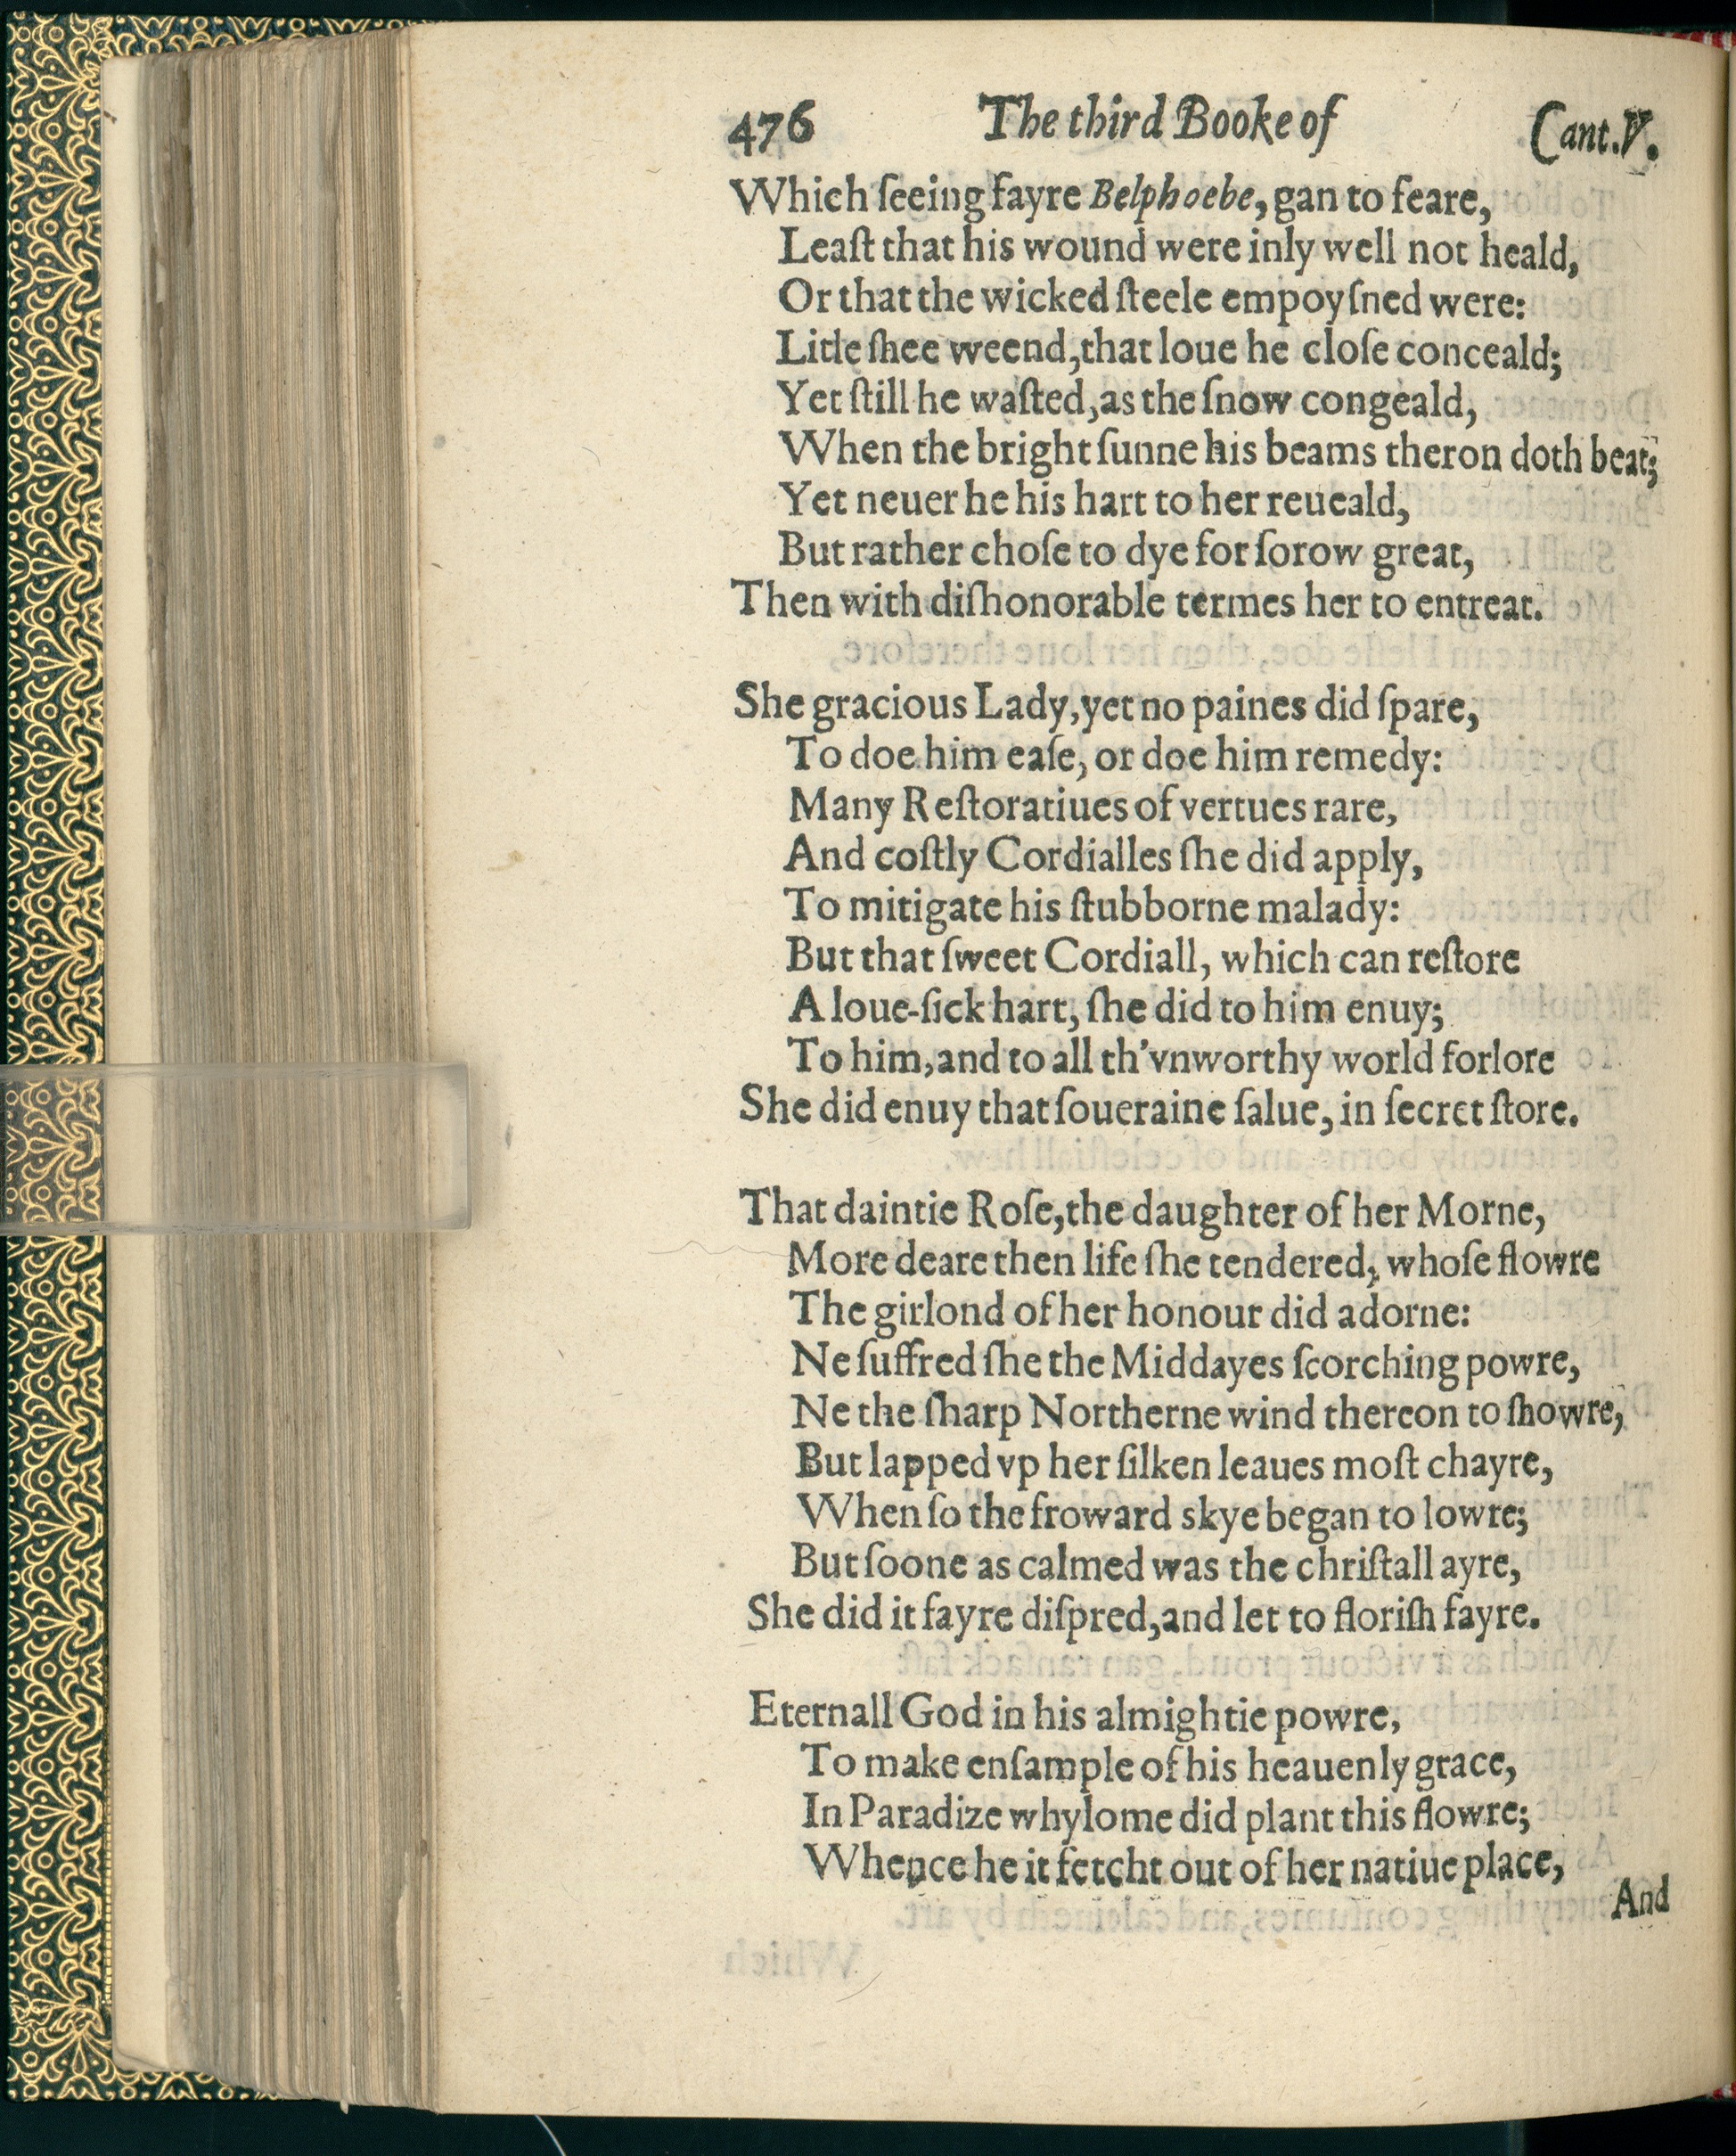 476 The third Booke of Cant.V.
Which ſeeing fayre Belphoebe, gan to feare,
Leaſt that his wound were inly well not heald,
Or that the wicked ſteele empoyſned were:
Litle ſhee weend, that loue he cloſe conceald;
Yet ſtill he waſted, as the ſnow congeald,
When the bright ſunne his beams theron doth beat;
Yet neuer he his hart to her reueald,
But rather choſe to dye for ſorow great,
Then with diſhonorable termes her to entreat.
She gracious Lady, yet no paines did ſpare,
To doe him eaſe, or doe him remedy:
Many Reſtoratiues of vertues rare,
And coſtly Cordialles ſhe did apply,
To mitigate his ſtubborne malady:
But that ſweet Cordiall, which can reſtore
A loue-ſick hart, ſhe did to him enuy;
To him, and to all th'vnworthy world forlore
She did enuy that ſoueraine ſalue, in ſecret ſtore.
That daintie Roſe, the daughter of her Morne,
More deare then life ſhe tendered, whoſe flowre
The girlond of her honour did adorne:
Ne ſuffred ſhe the Middayes ſcorching powre,
Ne the ſharp Northerne wind thereon to ſhowre,
But lapped vp her ſilken leaues moſt chayre,
When ſo the froward skye began to lowre;
But ſoone as calmed was the chriſtall ayre,
She did it fayre diſpred, and let to floriſh fayre.
Eternall God in his almightie powre,
To make enſample of his heauenly grace,
In Paradize whylome did plant this flowre;
Whence he it fetcht out of her natiue place,
And